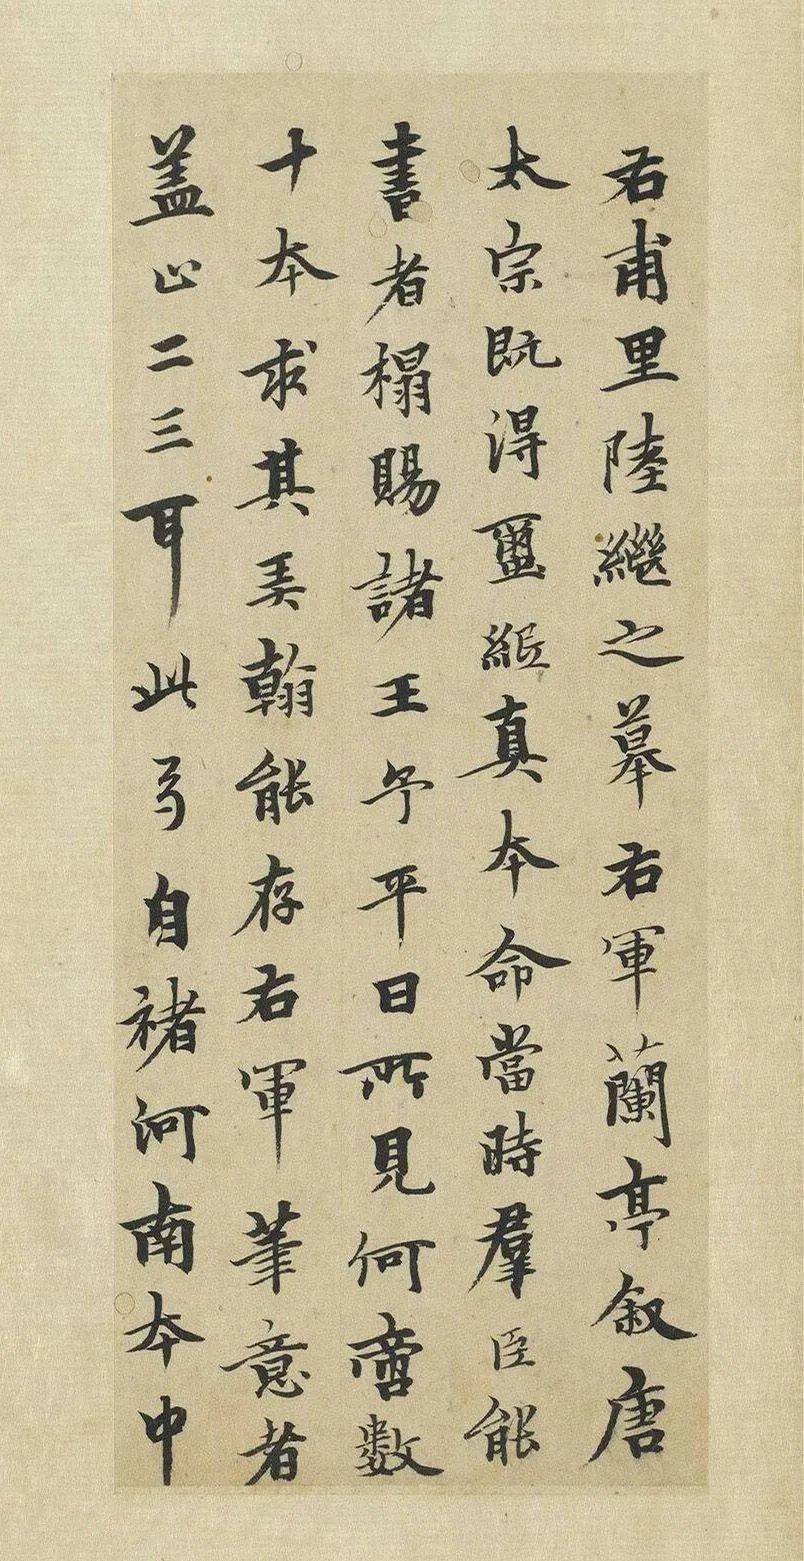 右甫里陸繼之摹右軍蘭亭叙唐
太宗既得璽紙真本命當時羣臣能
書者榻賜諸王余平日所見何啻數
十本求其美翰能存右軍筆意者
盖止二三耳此弓自褚河南本中